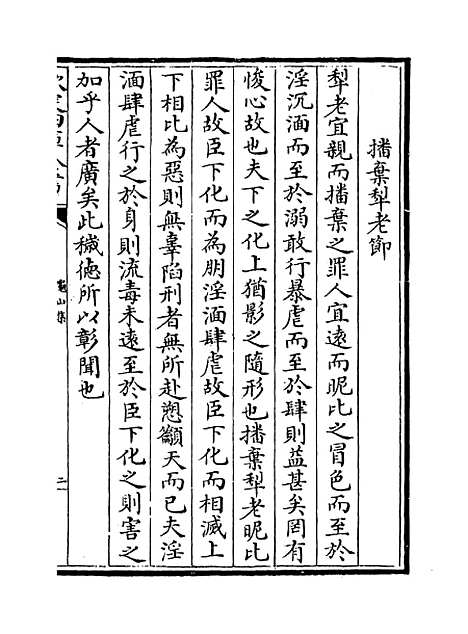 播棄犁老節
犁老宜親而播棄之罪人宜遠而昵比之冒色而至於
淫沉湎而至於溺敢行暴虐而至於肆則益甚矣罔有
悛心故也夫下之化上猶影之隨形也播棄犁老昵比
罪人故臣下化而為朋淫湎肆虐故臣下化而相滅上
下相比為惡則無辜陷刑者無所赴愬籲天而已夫淫
湎肆虐行之於身則流毒未遠至於臣下化之則害之
加乎人者廣矣此穢徳所以彰聞也
龜山集
二